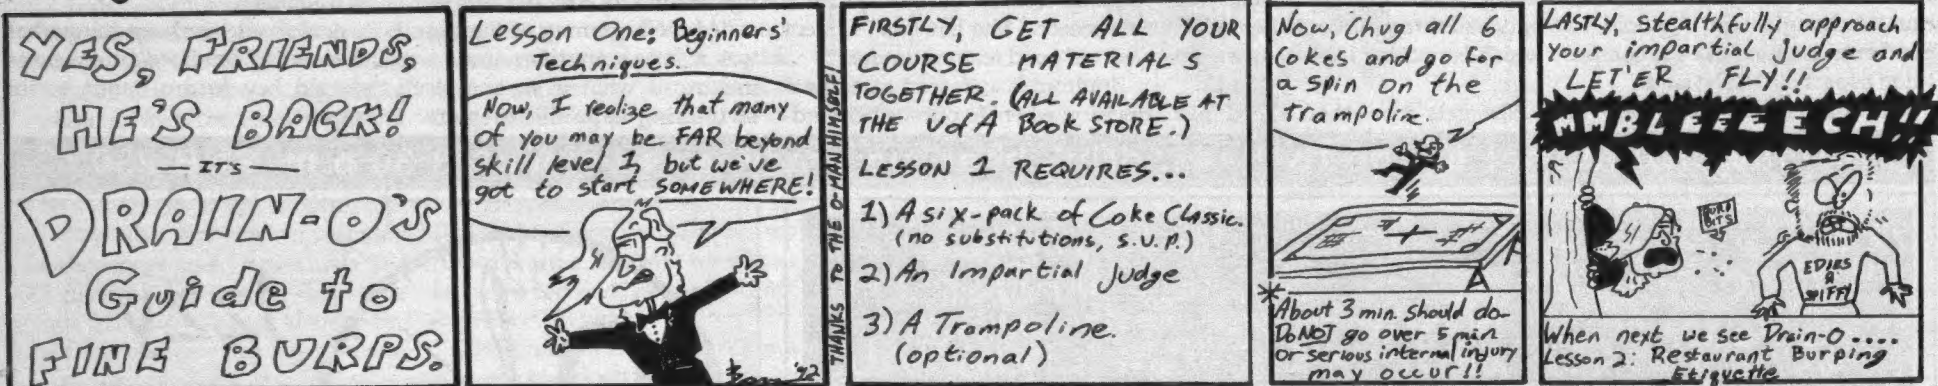 YES, FRIENDS,
HE'S BACK!
— IT'S —
DRAIN-O'S
Guide to
FINE BURPS.
Lesson One: Beginners'
Techniques.
Now, I realize that many
of you may be FAR beyond
skill level 1, but we've
got to start SOMEWHERE!
'92
THANKS TO THE O-MAN HIMSELF!
FIRSTLY, GET ALL YOUR
COURSE MATERIALS
TOGETHER. (ALL AVAILABLE AT
THE U of A BOOK STORE.)
LESSON 1 REQUIRES...
1) A six-pack of Coke Classic.
(no substitutions, s.v.p.)
2) An Impartial Judge
3) A Trampoline.
(optional)
Now, Chug all 6
Cokes and go for
a spin on the
trampoline.
*About 3 min. should do-
Do NOT go over 5 min
or serious internal injury
may occur!!
LASTLY, stealthfully approach
your impartial judge and
LET'ER FLY!!
MMBLEEEEECH!!
BURP
EDIES
A
SPIFFY
When next we see Drain-O....
Lesson 2: Restaurant Burping
Etiquette